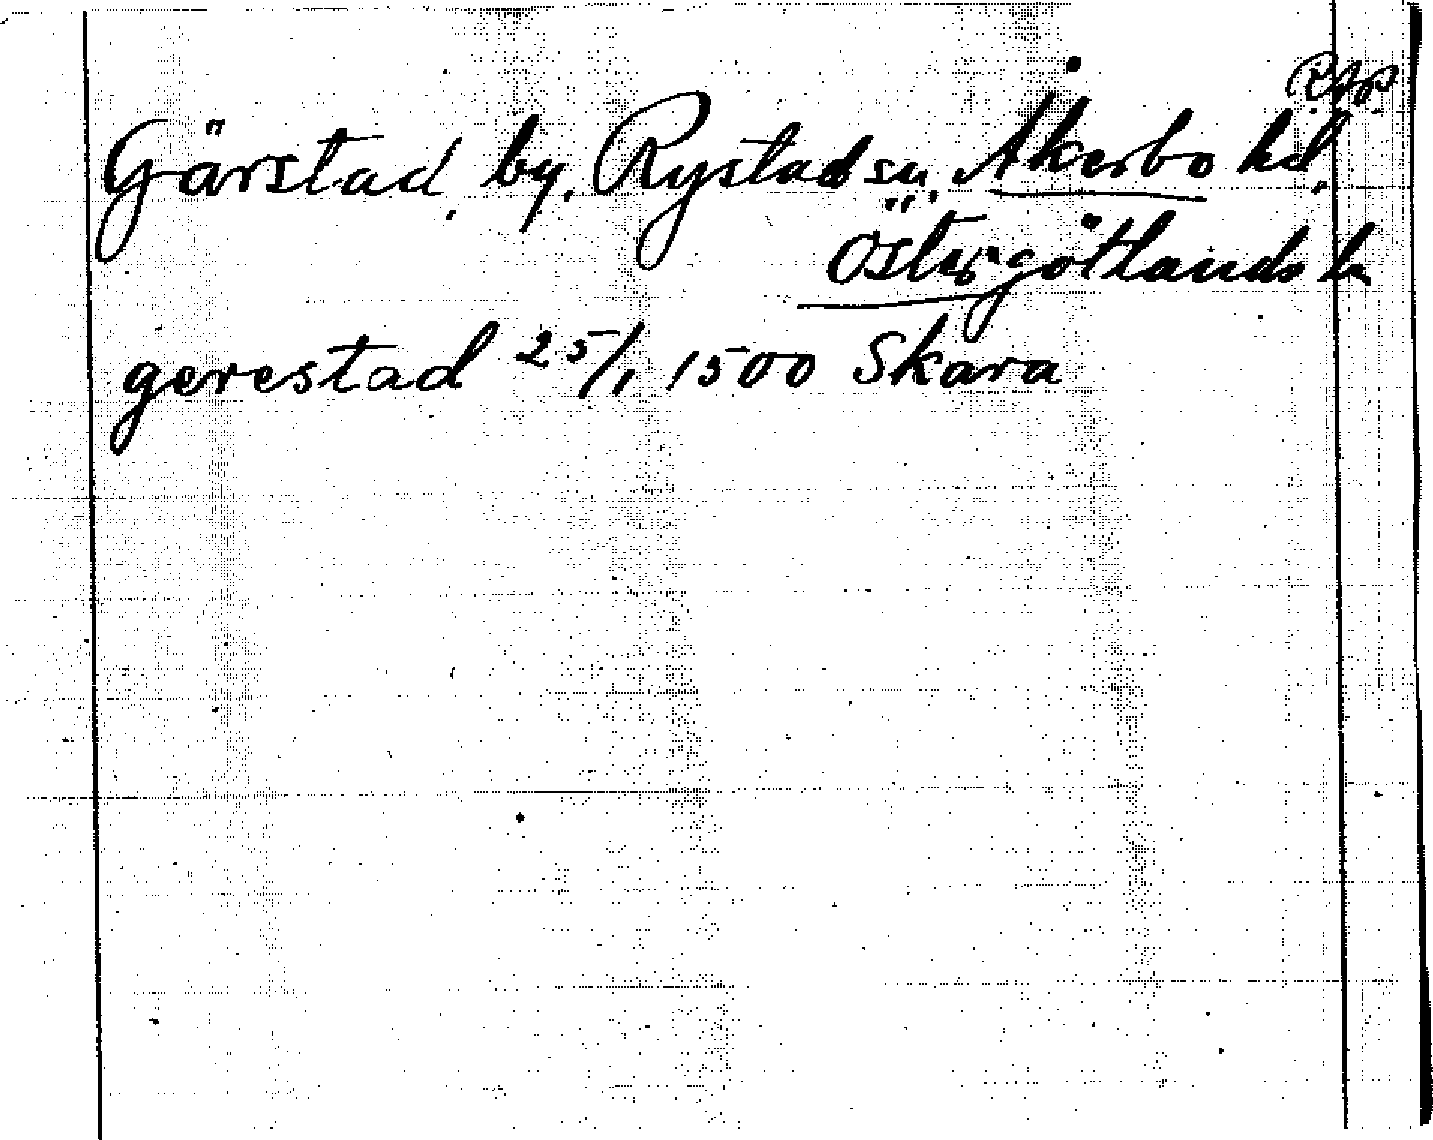 Gärstad, by, Rystad sn, Åkerbo hd,
Östergötlands ln
gerestad 25/1 1500 Skara